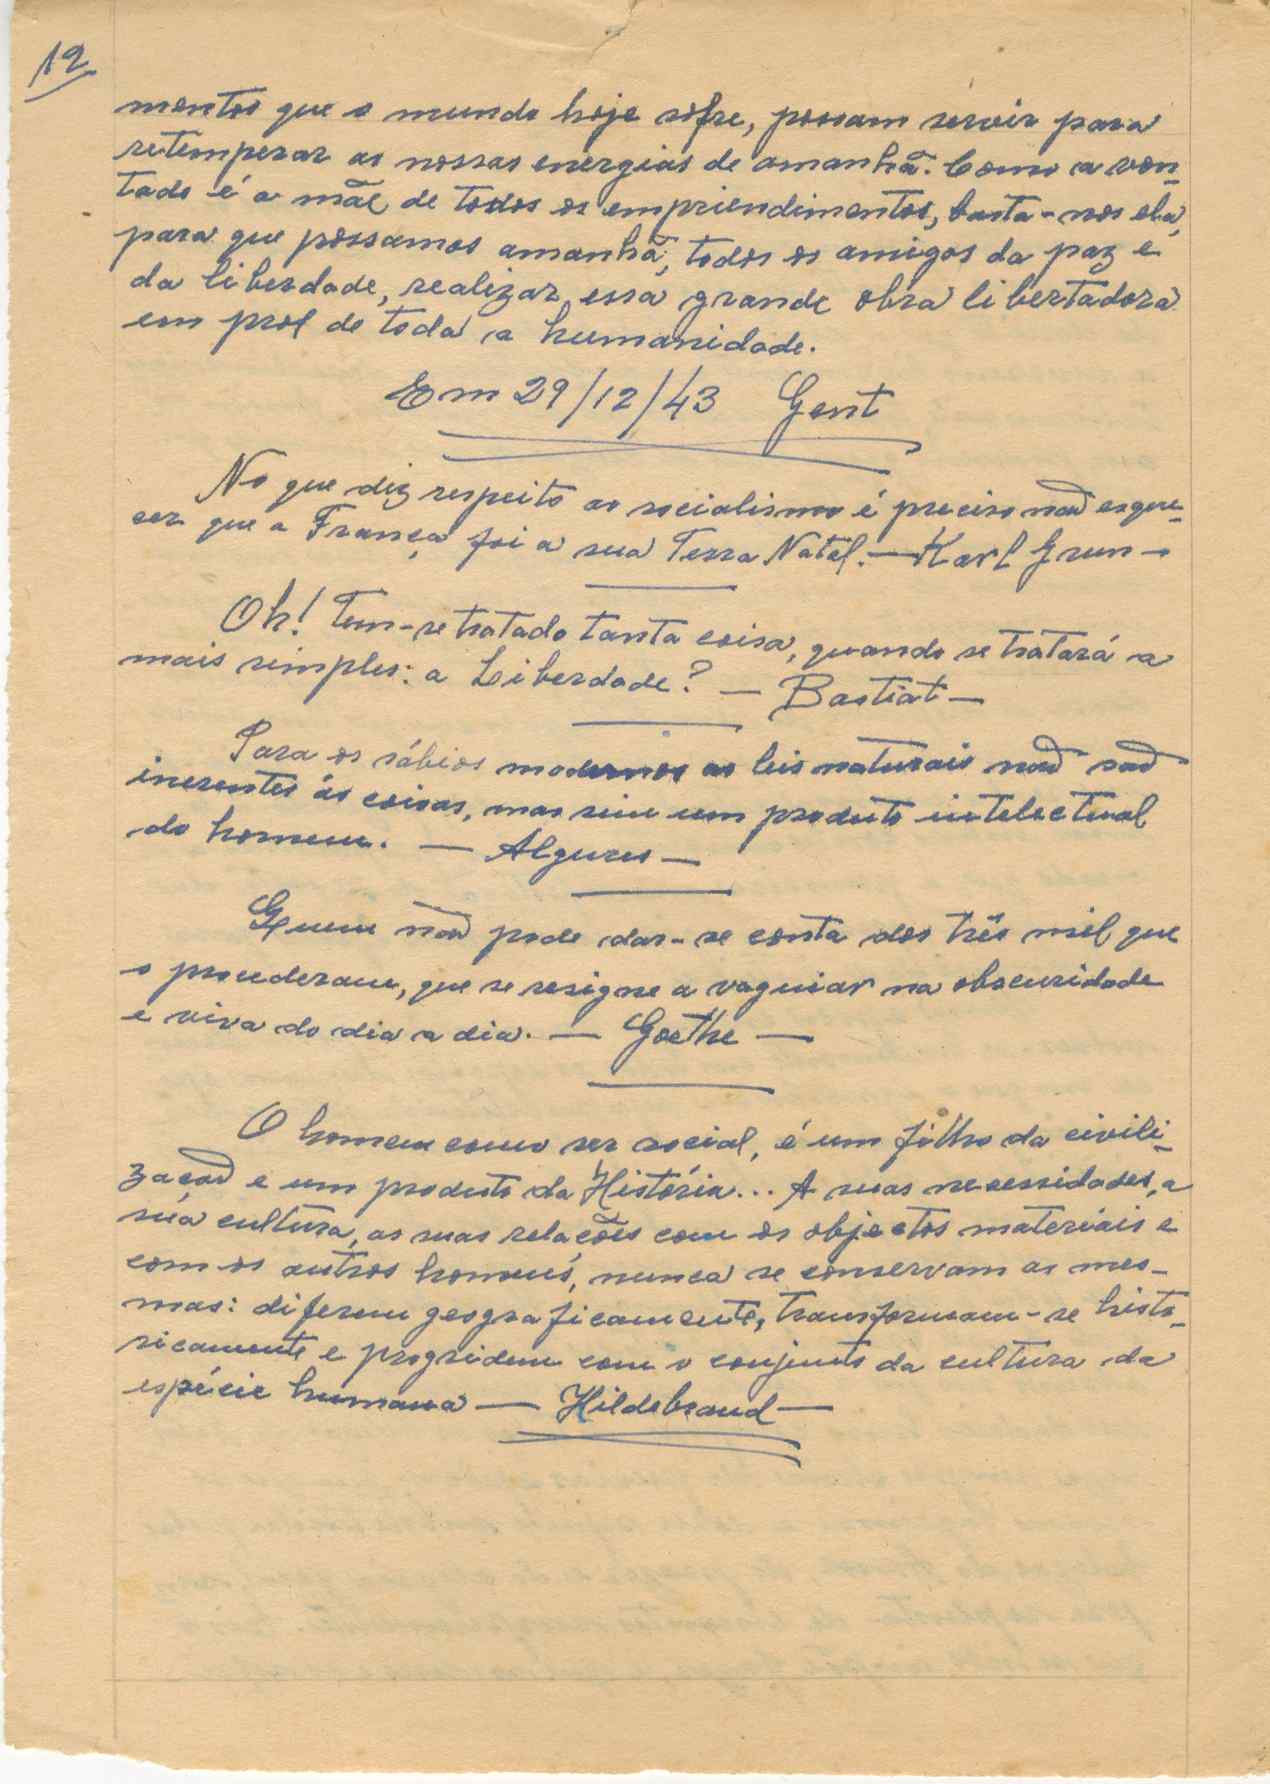 12
mentos que o mundo hoje sofre, possam servir para
retemperar as nossas energias de amanhã. Como a von-
tade é a mãe de todos os empriendimentos, basta-nos ela,
para que possamos amanhã, todos os amigos da paz e
da liberdade, realizar essa grande obra libertadora
em prol de toda a humanidade.
Em 29/12/43 Gent
No que diz respeito ao socialismo é preciso não esque-
cer que a França foi a sua Terra Natal. — Karl Grun —
Oh! Tem-se tratado tanta coisa, quando se tratará a
mais simples: a Liberdade? — Bastiat —
Para os sábios modernos as leis naturais não são
inerentes ás coisas, mas sim um produto intelectual
do homem. — Algures —
Quem não pode dar-se conta dos três mil que
o precederam, que se resigne a vaguiar na obscuridade
e viva do dia a dia. — Goethe —
O homem como ser social, é um filho da civili-
zação e um produto da História... A suas necessidades, a
sua cultura, as suas relações com os objectos materiais e
com os outros homens, nunca se conservam as mes-
mas: diferem geograficamente, transformam-se histo-
ricamente e progridem com o conjunto da cultura da
espécie humana — Hildebrand —